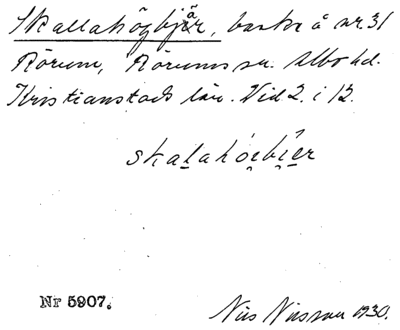 Skallahögbjår, backe å nr. 31
Rörum, Rörums sn. Albo hd.
Kristianstads län. Vid 2. i 12.
skalahöɛbi̯er
Nr 5907.
Nils Nilsson 1930.